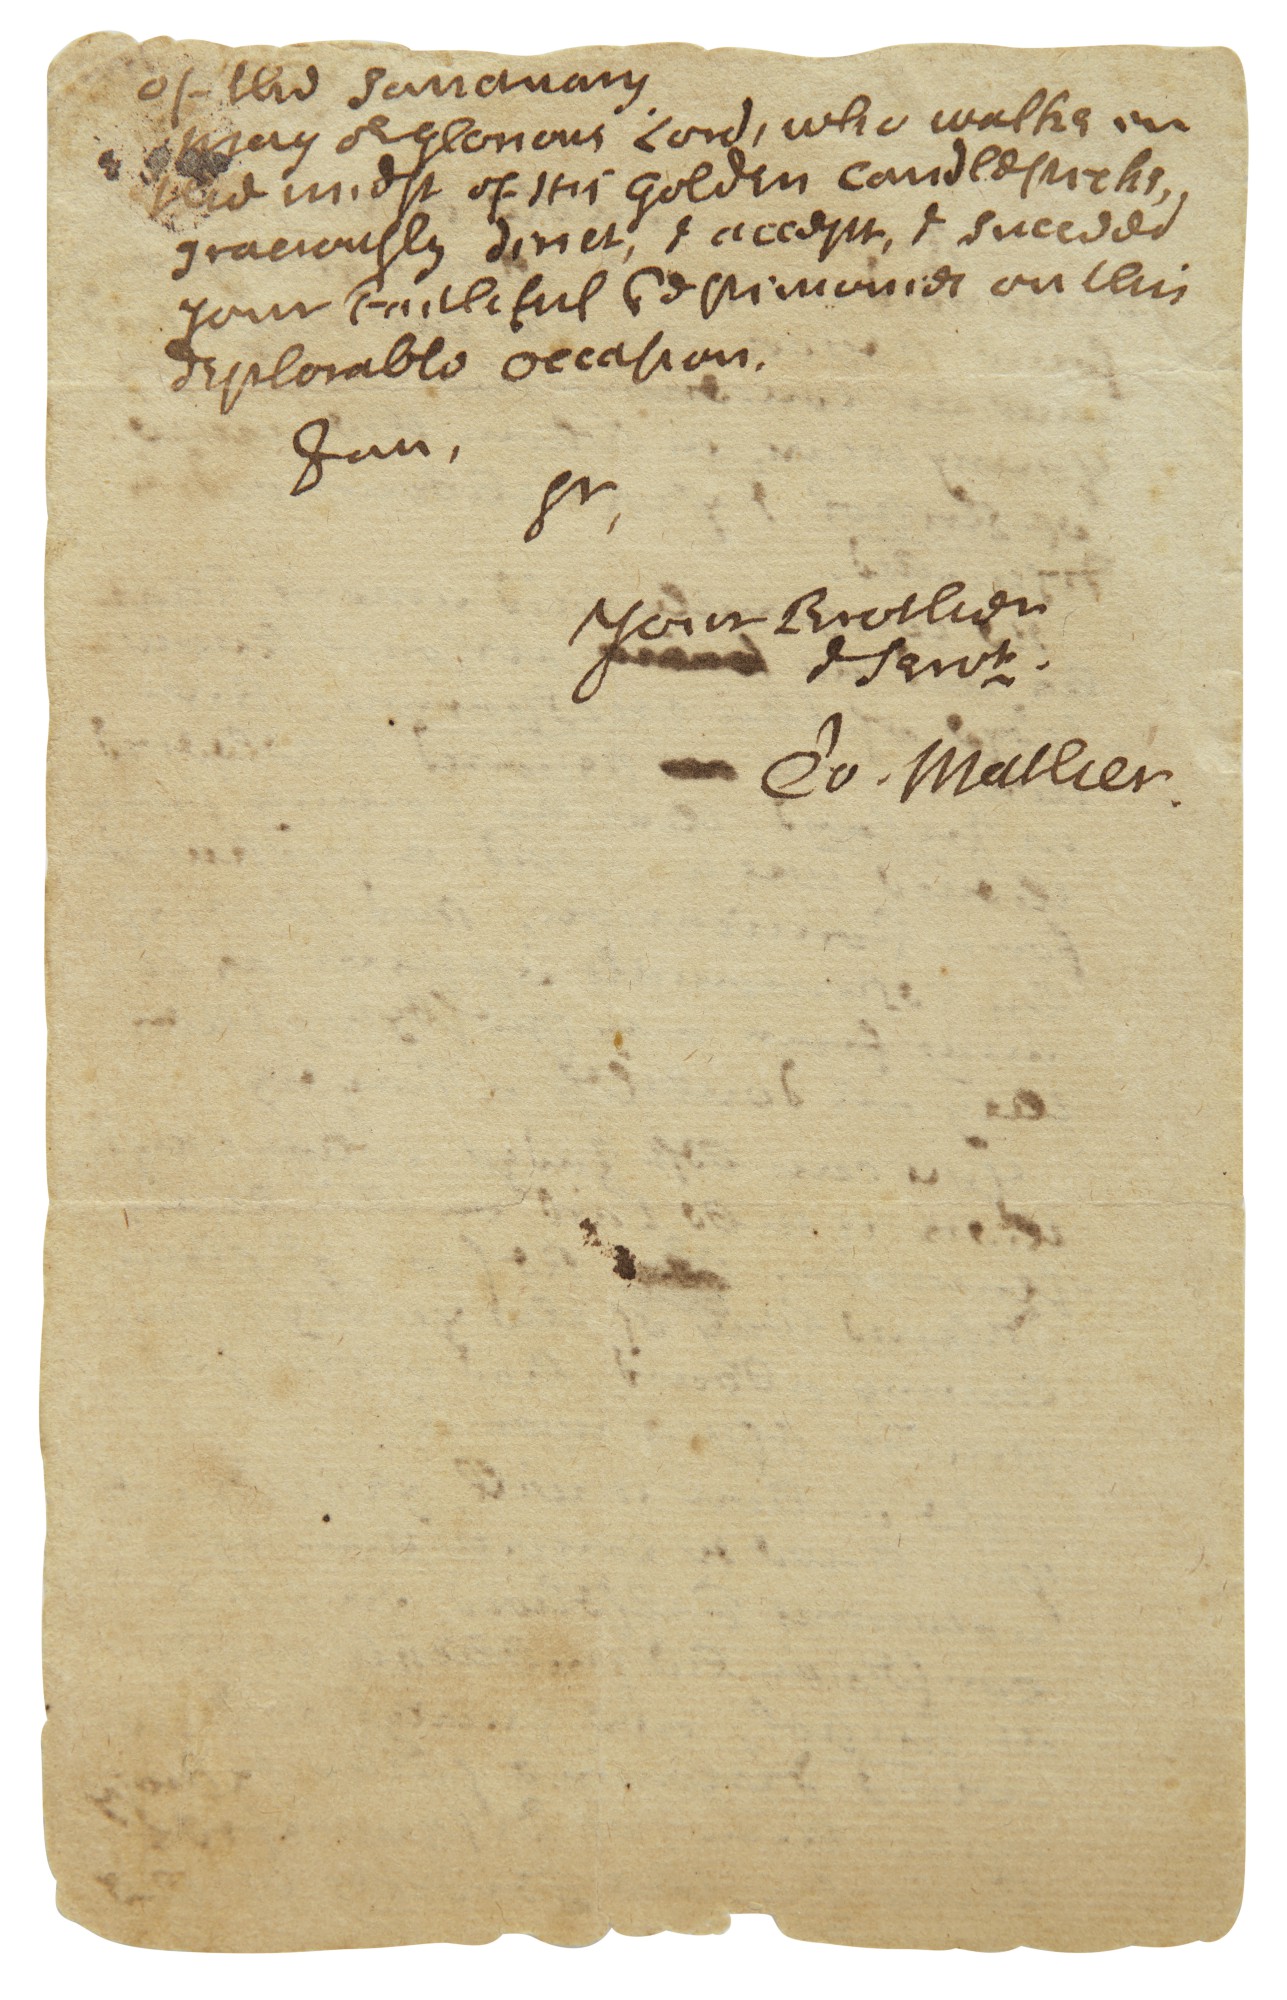 of the Sanctuary
May ye glorious Lord, who walks in
the midst of His Golden Candlesticks,
graciously direct, & accept, & succeed
your Faithful Testimonies on this
deplorable Occasion.
I am,
Sr,
Your Brother
& Servt.
Co. Mather.